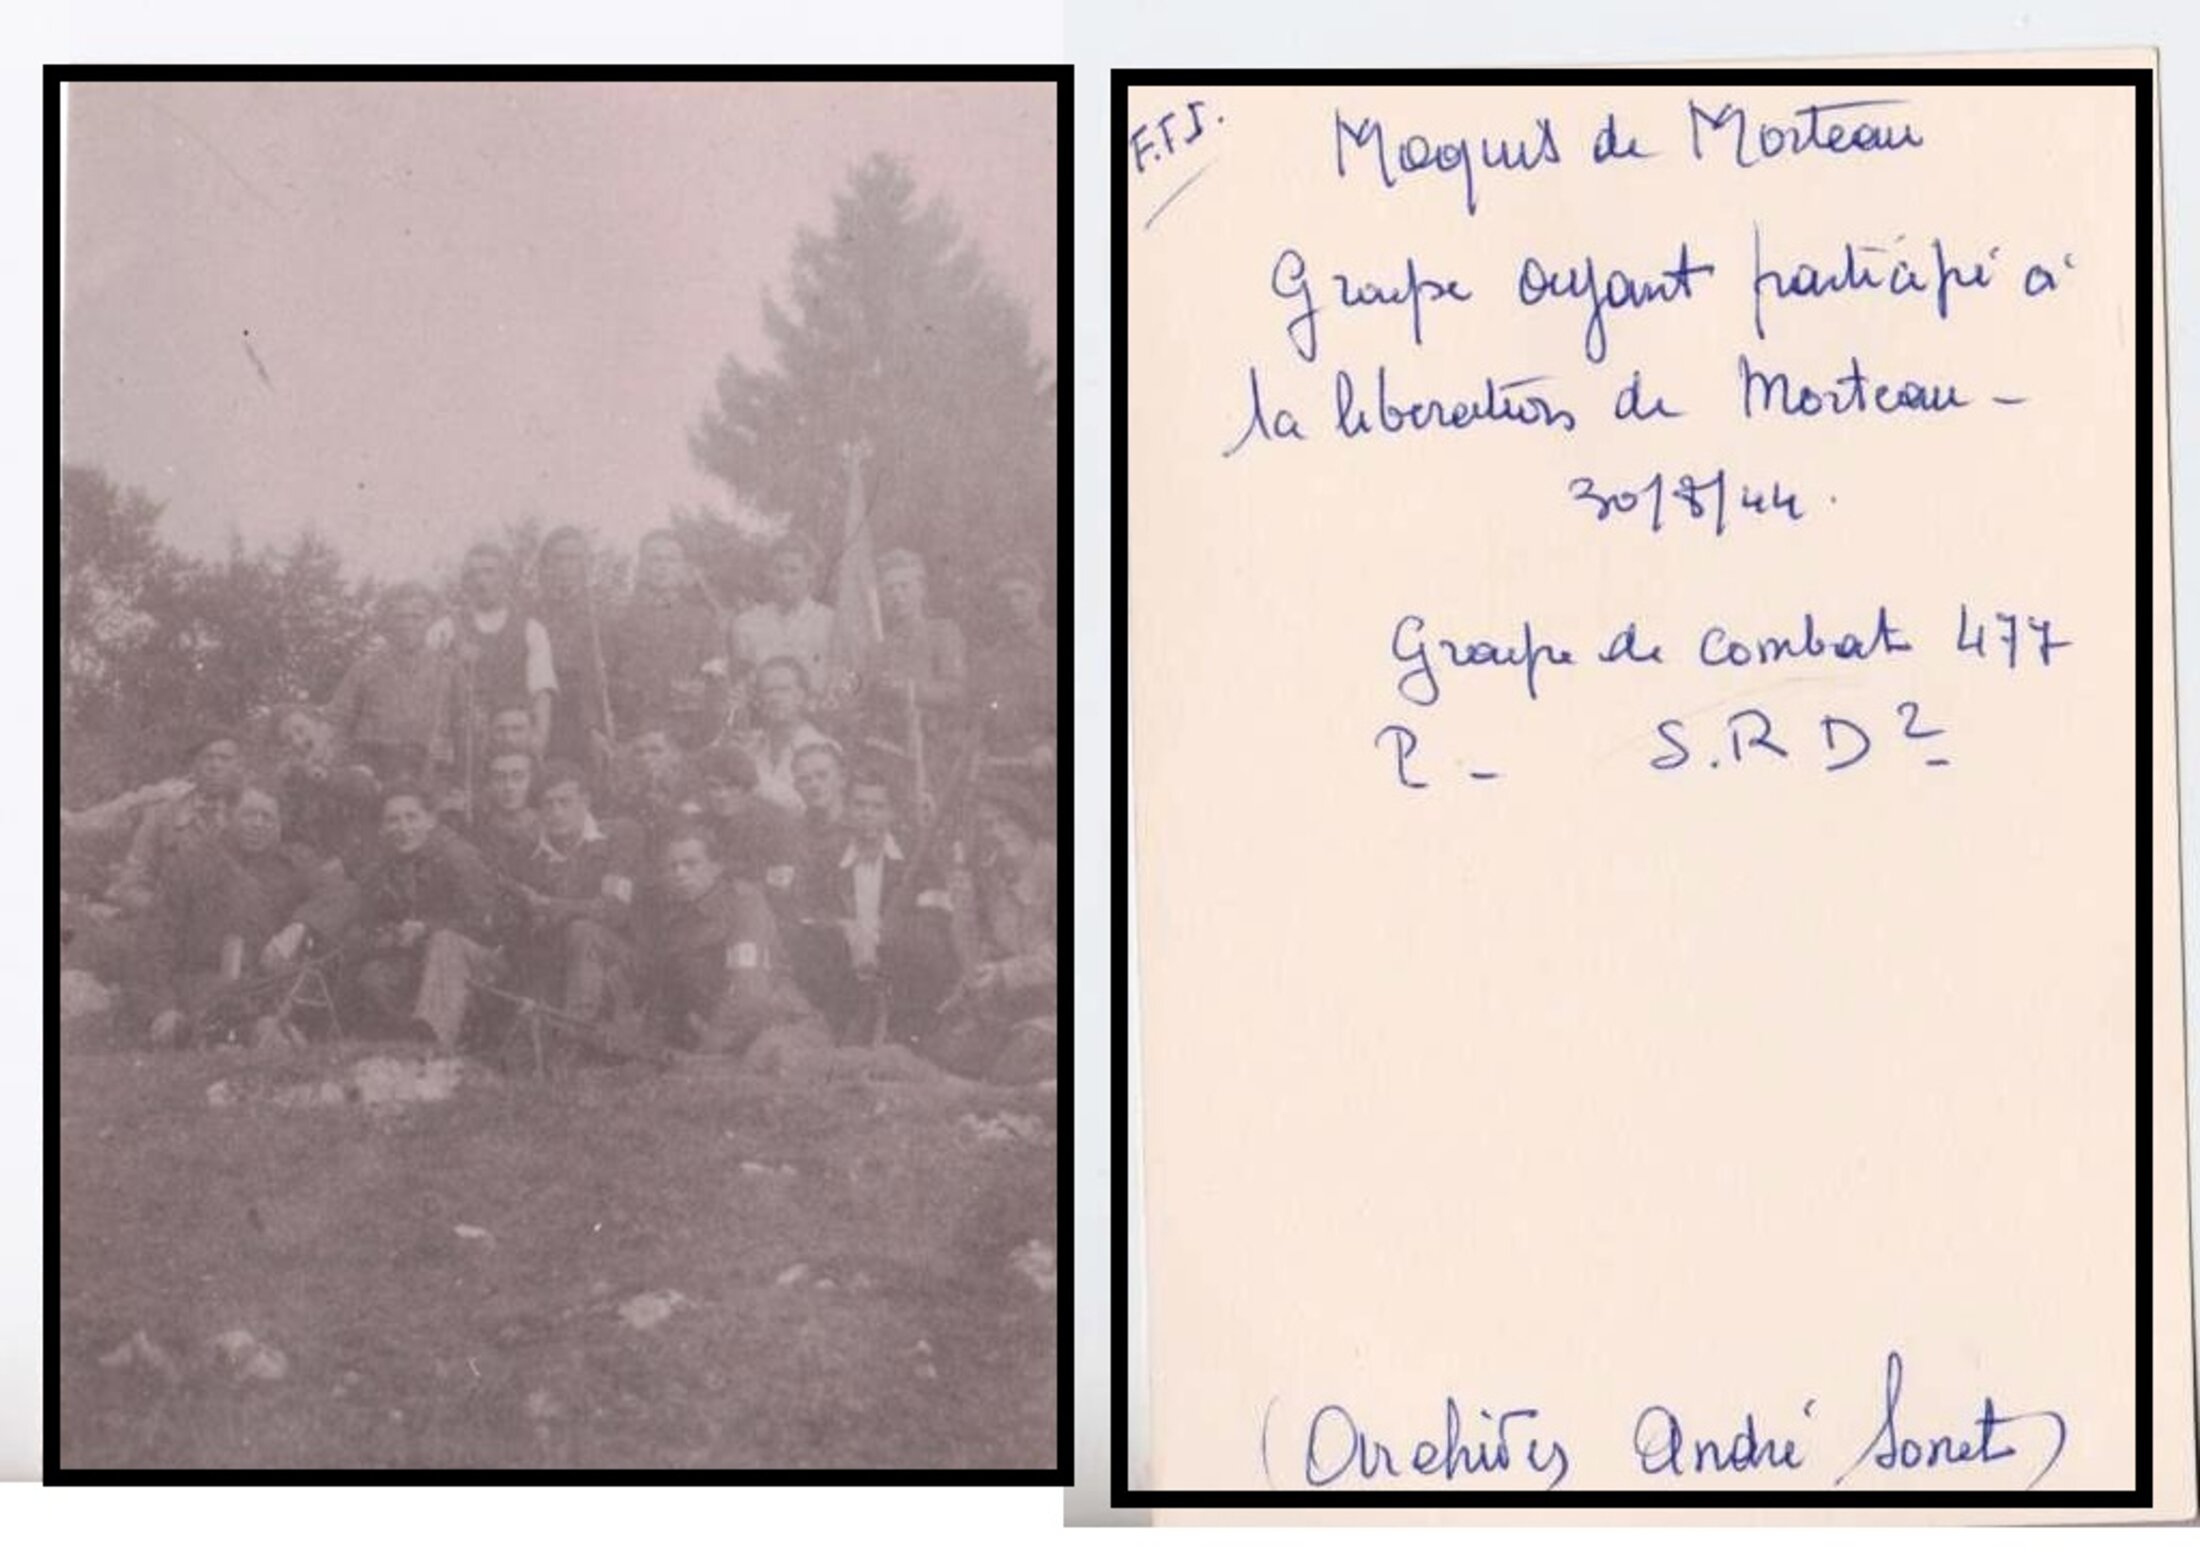 F.F.I.
Maquis de Morteau
Groupe ayant participé à
la libération de Morteau -
30/8/44.
Groupe de combat 477
P - S.R D 2
(Archives André Sonet)